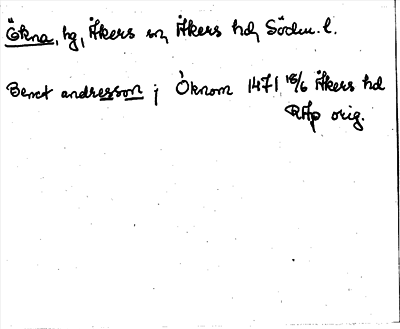 Ökna, hg, Åkers sn, Åkers hd, Södm. l.
Benct andresson j Öknom 1471 18/6 Åkers hd
RAp orig.